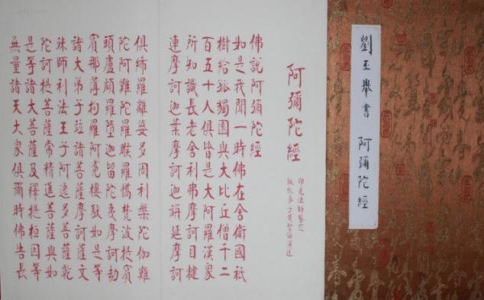 劉玉舉書 阿彌陀經
阿彌陀經
印光法師鑒定
佛說阿彌陀經
如是我聞一時佛在舍衛國祇
樹給孤獨園與大比丘僧千二
百五十人俱皆是大阿羅漢眾
所知識長老舍利弗摩訶目犍
連摩訶迦葉摩訶迦旃延摩訶
俱絺羅離婆多周利槃陀伽難
陀阿難陀羅睺羅憍梵波提賓
頭盧頗羅墮迦留陀夷摩訶劫
賓那薄拘羅阿㝹樓馱如是等
諸大弟子並諸菩薩摩訶薩文
殊師利法王子阿逸多菩薩乾
陀訶提菩薩常精進菩薩與如
是等諸大菩薩及釋提桓因等
無量諸天大眾俱爾時佛告長